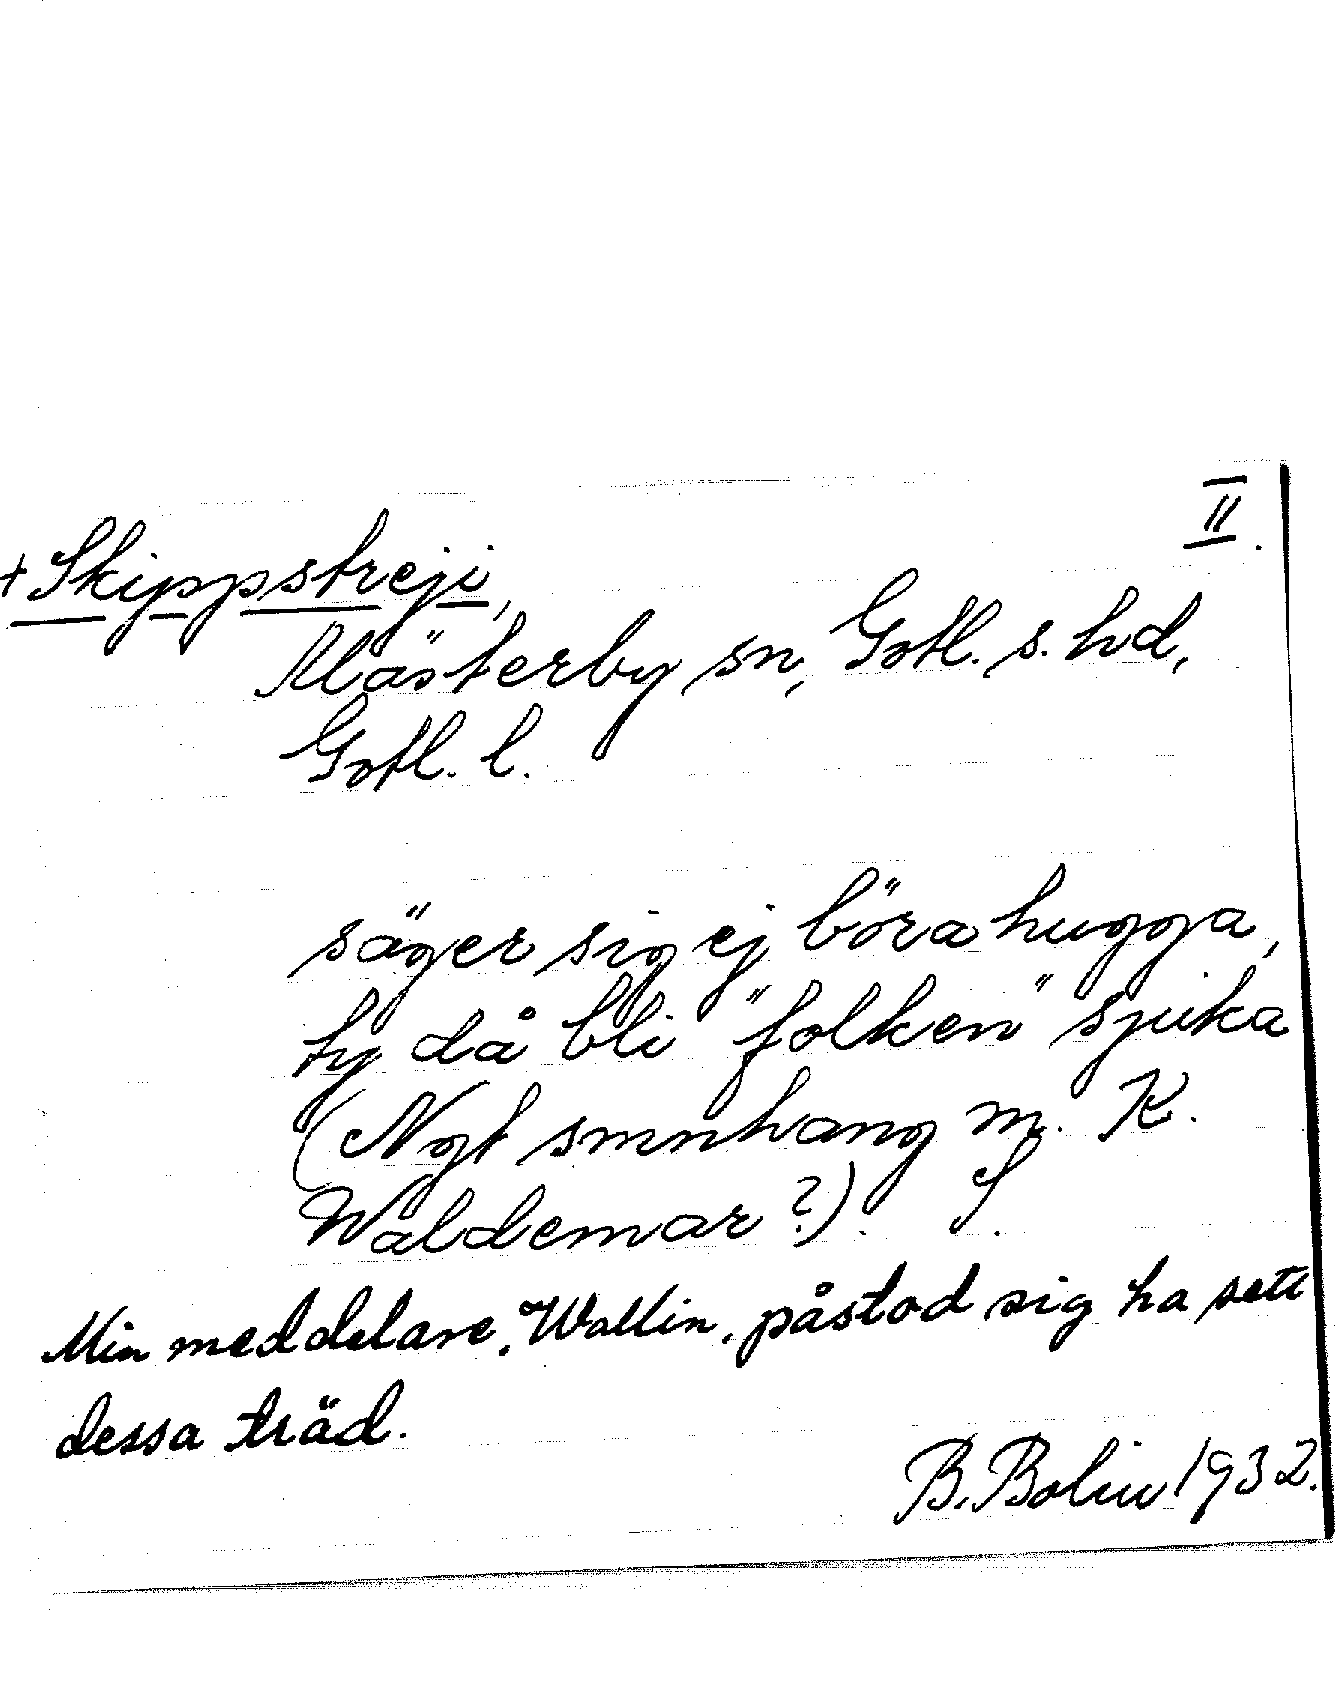 II.
+ Skippstreji,
Mästerby sn, Gotl. s. hd,
Gotl. l.
säger sig ej böra hugga,
ty då bli "folken" sjuka
(Ngt smnhang m. K.
Waldemar?). S.
Min meddelare, Wallin, påstod sig ha sett
dessa träd.
B. Bolin 1932.